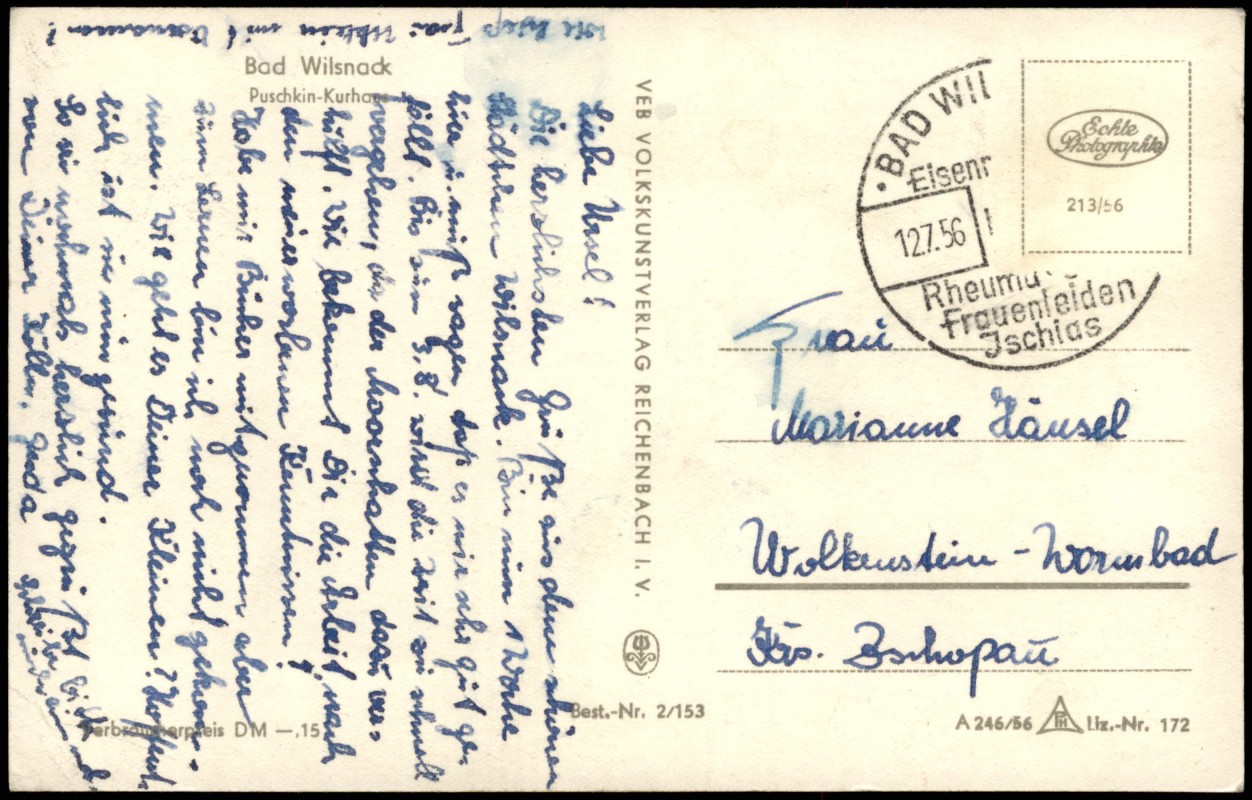 Bad Wilsnack
Puschkin-Kurhaus
Liebe Ursel!
Die herzlichsten Grüße aus dem schönen
Städtchen Wilsnack. Bin nun 1 Woche
hier u. muß sagen, daß es mir sehr gut ge-
fällt. Bis zum 3.8. wird die Zeit zu schnell
vergehen, da der Moorschatten dazu ver-
hilft. Wie bekommt Dir die Arbeit nach
den neuerworbenen Kenntnissen?
Habe mir Bücher mitgenommen aber
zum Lernen bin ich noch nicht gekom-
men. Wie geht es Deiner Kleinen? Hoffent-
lich ist sie nun gesund.
So sei nochmals herzlich gegrüßt
von Deiner Gerda
wie hieß Frau mit Vornamen?
VEB VOLKSKUNSTVERLAG REICHENBACH I. V.
Verbraucherpreis DM —,15
Best.-Nr. 2/153
· BAD WIL
Eisenr
12.7.56
Rheuma
Frauenleiden
Ischias
Echte
Photographie
213/56
Frau
Marianne Hänsel
Wolkenstein-Warmbad
Krs. Zschopau
A 246/56
PH
Liz.-Nr. 172